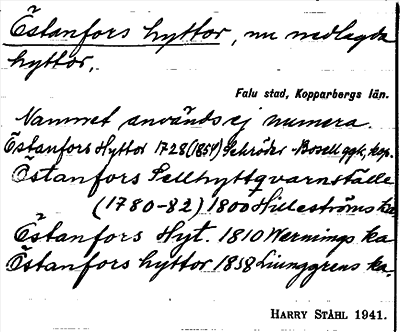 Östanfors hyttor, nu nedlagda
hyttor.
Falu stad, Kopparbergs län.
Namnet används ej numera.
Östanfors Hyttor 1728 (1854) Schröder-Bosell ggk, kop.
Östanfors Sellhyttqvarnställe
(1780-82) 1800 Hilleströms
Östanfors Hyt. 1810 Wernings ka
Östanfors hyttor 1858 Ljunggrens ka.
HARRY STÅHL 1941.